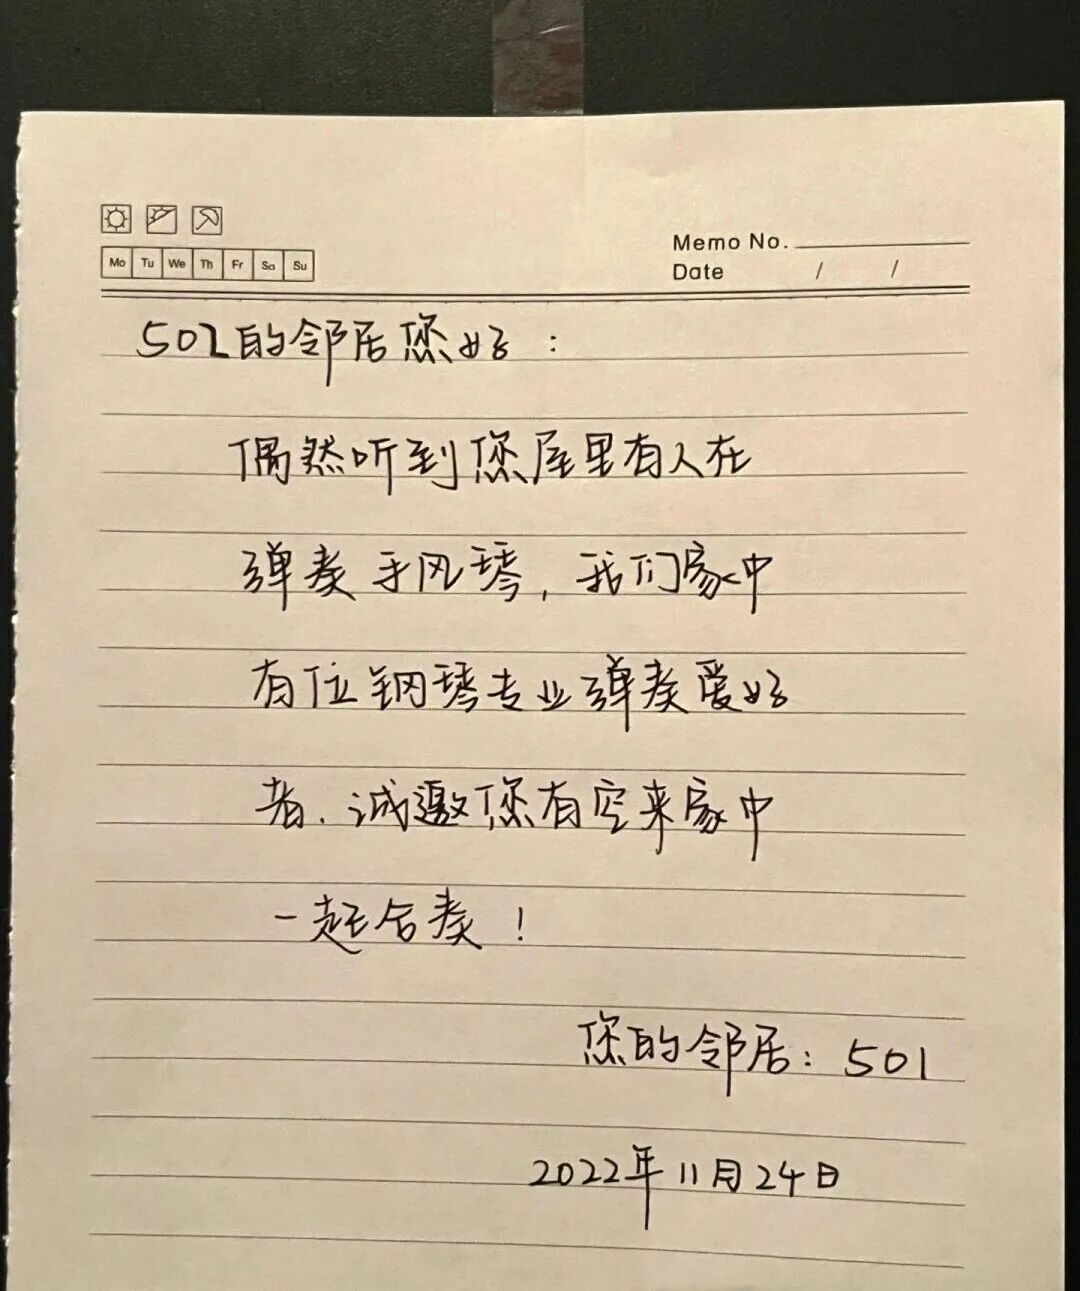 Mo Tu We Th Fr Sa Su
Memo No.
Date / /
502的邻居您好：
偶然听到您屋里有人在
弹奏手风琴，我们家中
有位钢琴专业弹奏爱好
者，诚邀您有空来家中
一起合奏！
您的邻居：501
2022年11月24日